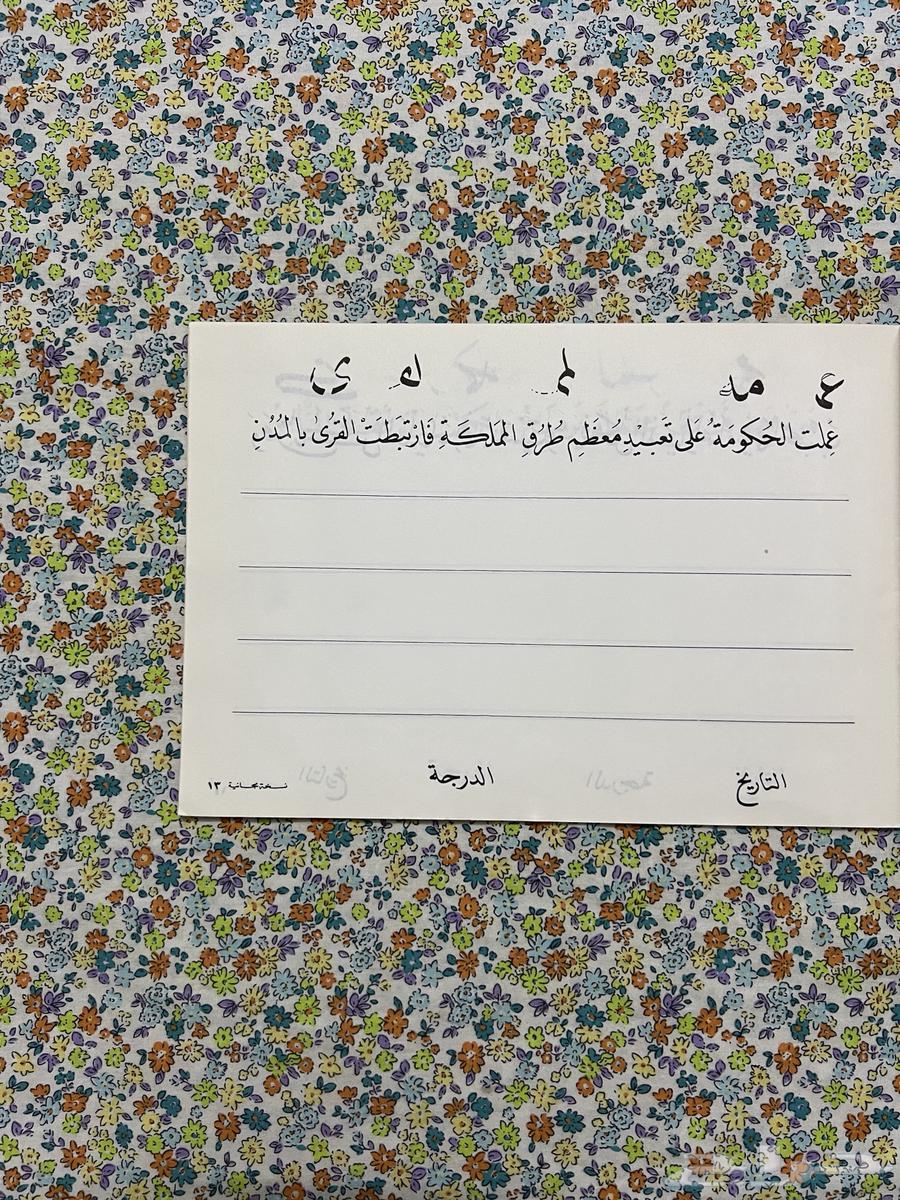 عملت الحُكومَةُ على تَعبيْدِ مُعظَمِ طُرُقِ المَملَكَةِ فَارْتبَطَتْ القُرىٰ بالمُدُنِ
التاريخ الدرجة نسخة مجانية ١٣